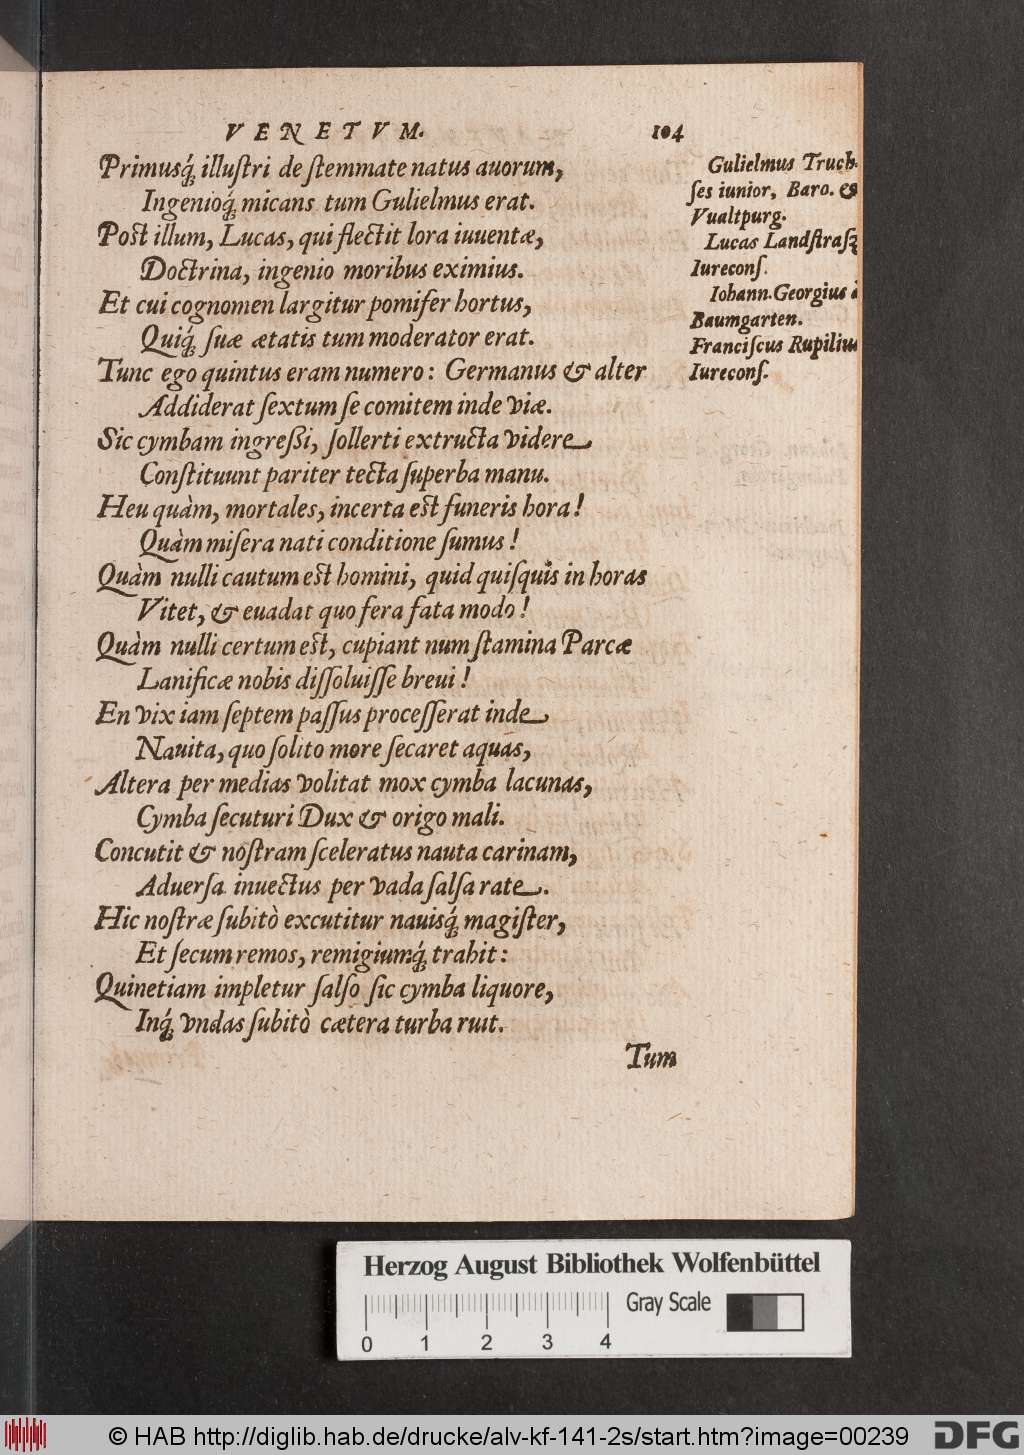 VENETVM. 104
Primusq́; illuſtri de ſtemmate natus auorum,
Ingenioq́; micans tum Gulielmus erat.
Poſt illum, Lucas, qui flectit lora iuuentæ,
Doctrina, ingenio moribus eximius.
Et cui cognomen largitur pomifer hortus,
Quiq́; ſuæ ætatis tum moderator erat.
Tunc ego quintus eram numero: Germanus & alter
Addiderat ſextum ſe comitem inde viæ.
Sic cymbam ingreßi, ſollerti extructa videre
Conſtituunt pariter tecta ſuperba manu.
Heu quàm, mortales, incerta eſt funeris hora!
Quàm miſera nati conditione ſumus!
Quàm nulli cautum eſt homini, quid quiſquis in horas
Vitet, & euadat quo fera fata modo!
Quàm nulli certum eſt, cupiant num ſtamina Parcæ
Lanificæ nobis diſſoluiſſe breui!
En vix iam ſeptem paſſus proceſſerat inde
Nauita, quo ſolito more ſecaret aquas,
Altera per medias volitat mox cymba lacunas,
Cymba ſecuturi Dux & origo mali.
Concutit & noſtram ſceleratus nauta carinam,
Aduerſa inuectus per vada ſalſa rate.
Hic noſtræ ſubitò excutitur nauisq́; magiſter,
Et ſecum remos, remigiumq́; trahit:
Quinetiam impletur ſalſo ſic cymba liquore,
Inq́; vndas ſubitò cætera turba ruit.
Tum
Gulielmus Truch-
ſes iunior, Baro. &
Vualtpurg.
Lucas Landſtraſz
Iureconſ.
Iohann. Georgius à
Baumgarten.
Franciſcus Rupilius
Iureconſ.
Herzog August Bibliothek Wolfenbüttel
Gray Scale
0 1 2 3 4
© HAB http://diglib.hab.de/drucke/alv-kf-141-2s/start.htm?image=00239
DFG